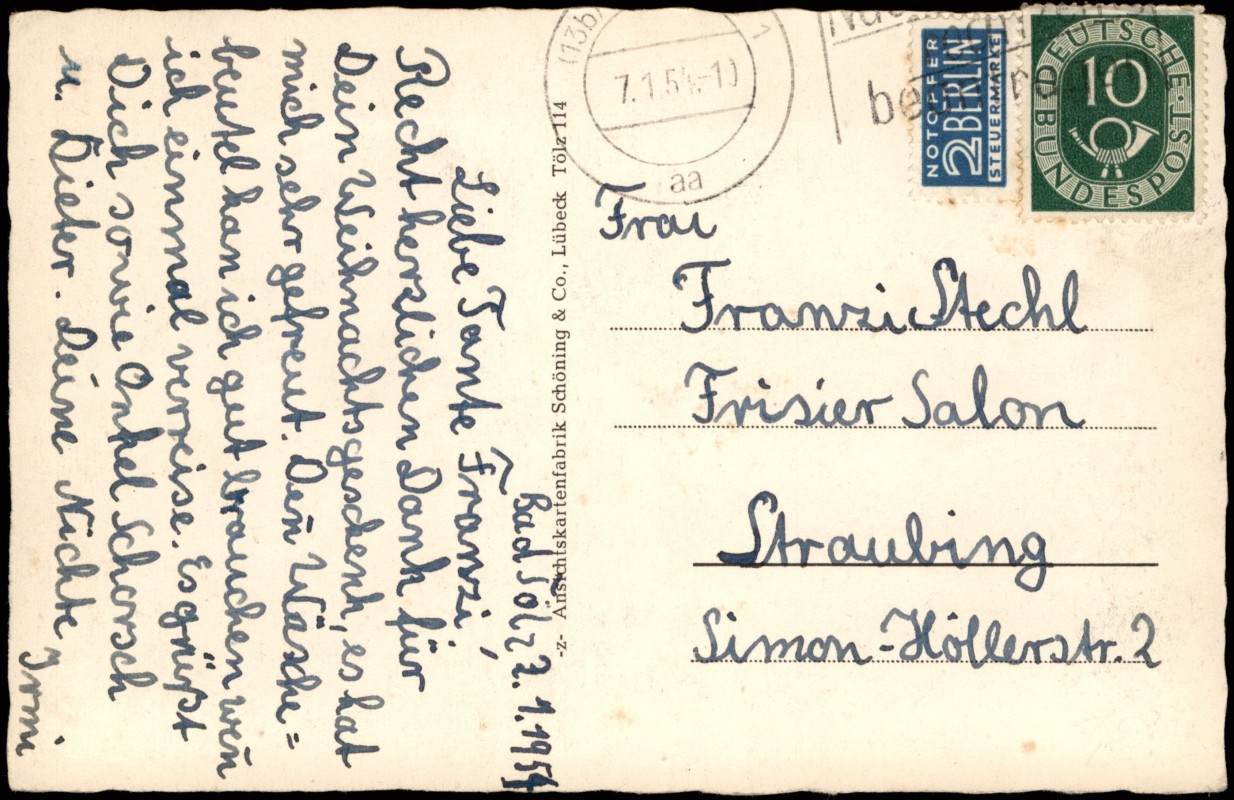 Bad Tölz 7.1.1954
Liebe Tante Franzi,
Recht herzlichen Dank für
Dein Weihnachtsgeschenk, es hat
mich sehr gefreut. Den Wäsche=
beutel kan̄ ich gut brauchen wen̄
ich einmal verreise. Es grüßt
Dich sowie Onkel Schorsch
u. Dieter. Deine Nichte Irmi
-z- Ansichtskartenfabrik Schöning & Co., Lübeck Tölz 114
(13b)
7.1.54-10
aa
NOTOPFER
2 BERLIN
STEUERMARKE
DEUTSCHE
10
BUNDESPOST
Frau
Franzi Stechl
Frisier Salon
Straubing
Simon-Höllerstr. 2